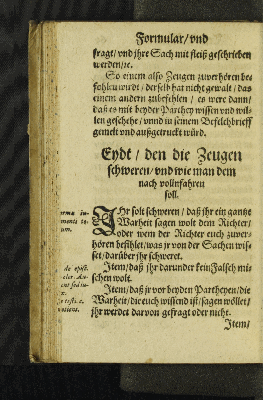 Formular/ vnd
fragt/ vnd jhre Sach mit fleiß geschrieben
werden/ ꝛc.
So einem also Zeugen zuverhören be-
fohlen wurdt/ derselb hat nicht gewalt/ das
einem andern zubefehlen/ es were dann/
daß es mit beyder Parthey wissen vnd wil-
len geschehe/ vnnd in seinem Befelchbrieff
gemelt vnd außgetruckt würd.
Eydt/ den die Zeugen
schweren/ vnd wie man dem
nach volnfahren
soll.
IHr solt schweren/ daß jhr ein gantze
Warheit sagen wolt dem Richter/
oder wem der Richter euch zuver-
hören befihlet/ was jr von der Sachen wis-
set/ darüber jhr schweret.
Item/ daß jhr darunder kein Falsch mi-
schen wolt.
Item/ daß jr vor beyden Partheyen/ die
Warheit/ die euch wissend ist/ sagen wöllet/
jhr werdet darvon gefragt oder nicht.
Item/